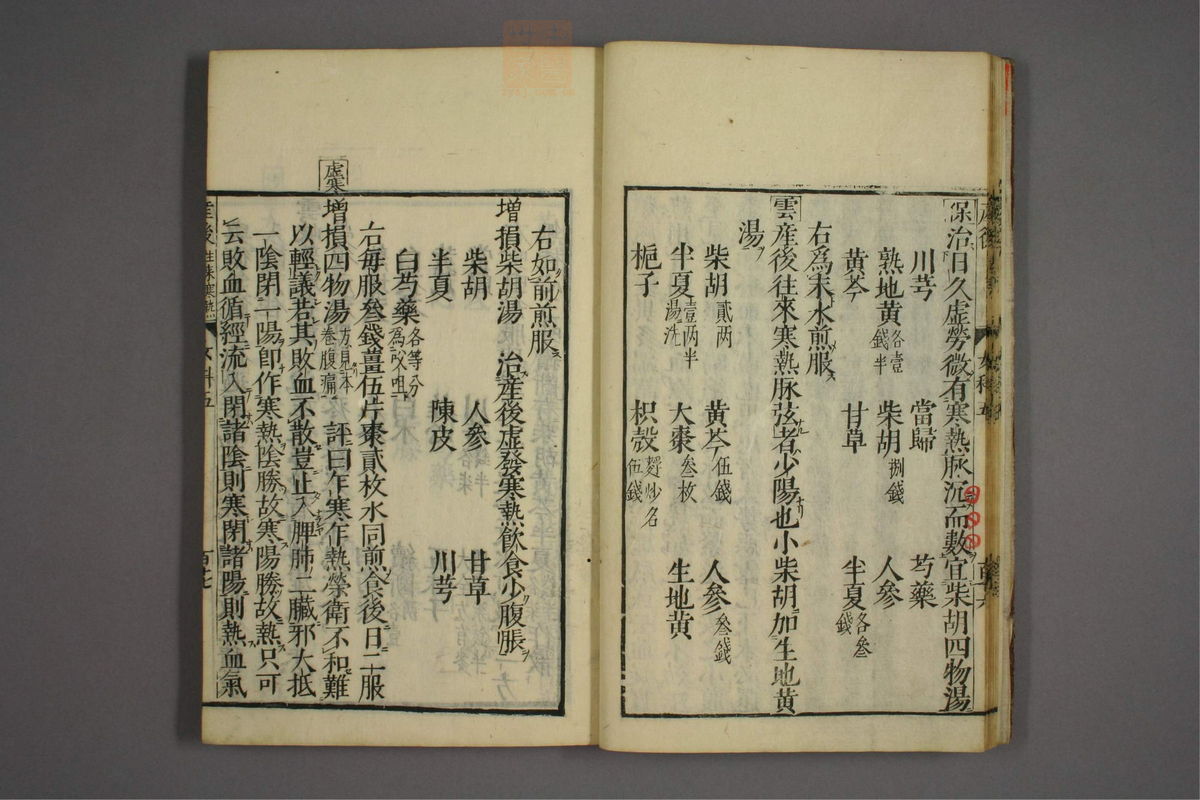 保治日久虛勞微有寒熱脉沉而數宜柴胡四物湯
川芎　當歸　芍藥
熟地黃各壹錢半　柴胡捌錢　人參
黃芩　甘草　半夏各叁錢
右爲末水煎服
雲産後往來寒熱脉弦者少陽也小柴胡加生地黃
湯
柴胡貳两　黃芩伍錢　人參叁錢
半夏壹两半湯洗　大棗叁枚　生地黃
梔子　枳殼麩炒各伍錢
右如前煎服
增損柴胡湯　治產後虛發寒熱飲食少腹脹
柴胡　人參　甘草
半夏　陳皮　川芎
白芍藥各等分爲㕮咀
右每服叁錢薑伍片棗貳枚水同煎食後日二服
虛寒增損四物湯方見本卷腹痛　評曰乍寒乍熱榮衛不和難
以輕議若其敗血不散豈止入脾肺二臟邪大抵
一陰閉二陽即作寒熱陰勝故寒陽勝故熱只可
云敗血循經流入閉諸陰則寒閉諸陽則熱血氣
產後 女科五